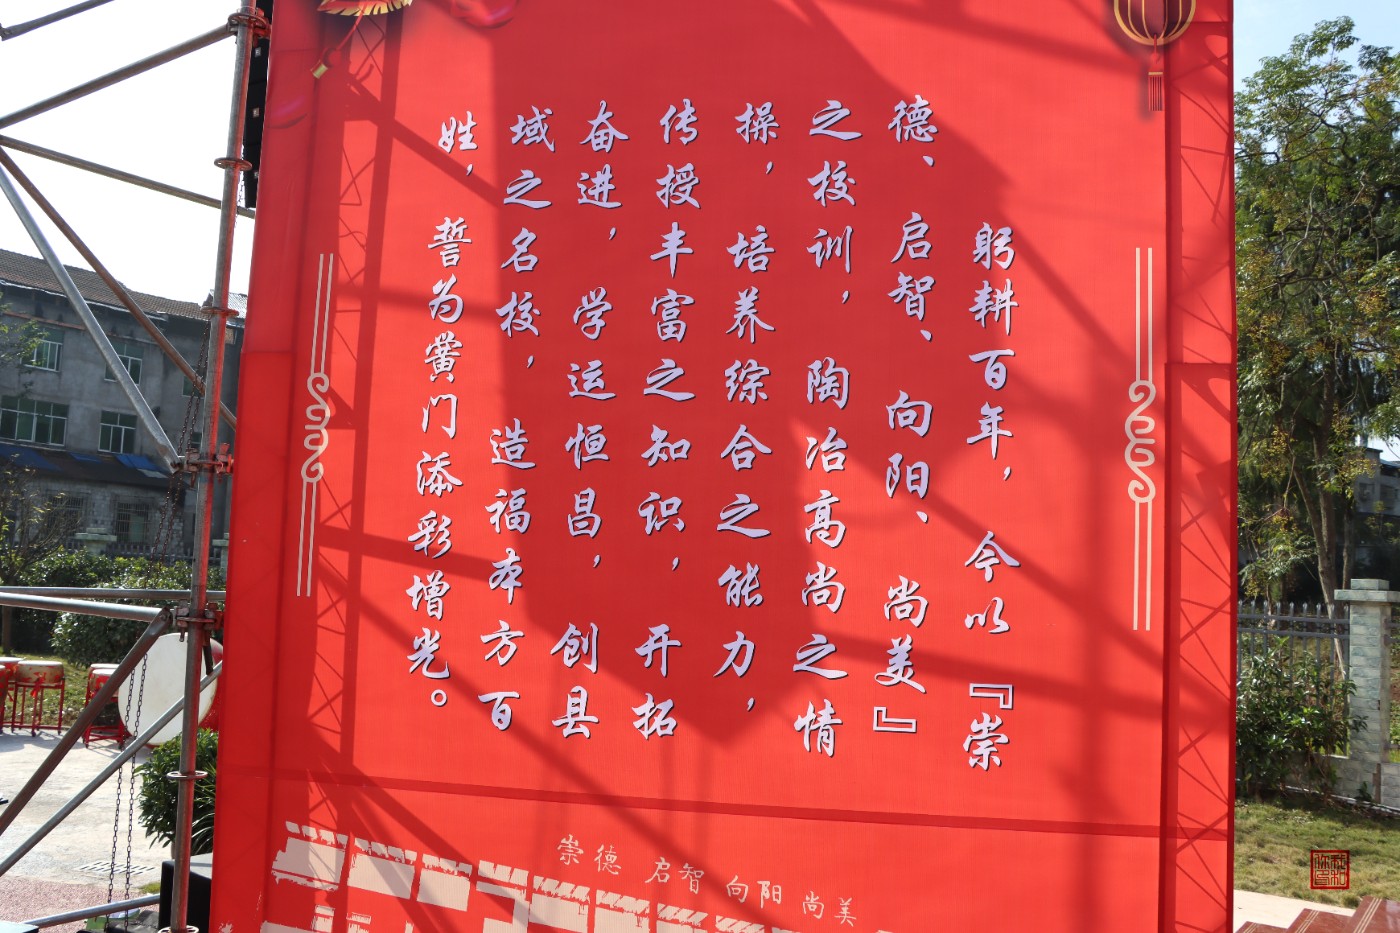 躬耕百年，今以『崇
德、启智、向阳、尚美』
之校训，陶冶高尚之情
操，培养综合之能力，
传授丰富之知识，开拓
奋进，学运恒昌，创县
域之名校，造福本方百
姓，誓为黉门添彩增光。
崇德 启智 向阳 尚美